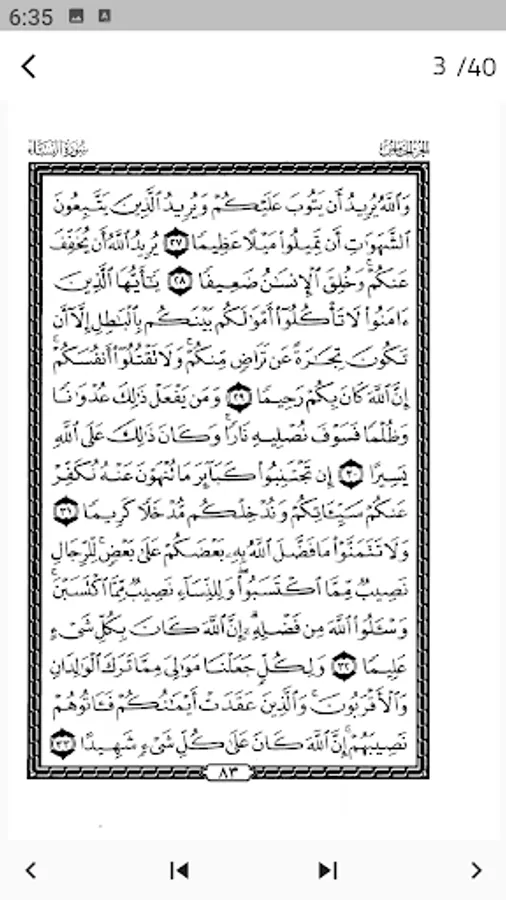 6:35
3 /40
سورة النساء
الجزء الخامس
وَاللَّهُ يُرِيدُ أَن يَتُوبَ عَلَيْكُمْ وَيُرِيدُ الَّذِينَ يَتَّبِعُونَ
الشَّهَوَاتِ أَن تَمِيلُوا مَيْلًا عَظِيمًا ٢٧ يُرِيدُ اللَّهُ أَن يُخَفِّفَ
عَنكُمْ ۚ وَخُلِقَ الْإِنسَـٰنُ ضَعِيفًا ٢٨ يَـٰٓأَيُّهَا الَّذِينَ
ءَامَنُوا لَا تَأْكُلُوٓا أَمْوَٰلَكُم بَيْنَكُم بِالْبَـٰطِلِ إِلَّآ أَن
تَكُونَ تِجَـٰرَةً عَن تَرَاضٍ مِّنكُمْ ۚ وَلَا تَقْتُلُوٓا أَنفُسَكُمْ ۚ
إِنَّ اللَّهَ كَانَ بِكُمْ رَحِيمًا ٢٩ وَمَن يَفْعَلْ ذَٰلِكَ عُدْوَٰنًا
وَظُلْمًا فَسَوْفَ نُصْلِيهِ نَارًا ۚ وَكَانَ ذَٰلِكَ عَلَى اللَّهِ
يَسِيرًا ٣٠ إِن تَجْتَنِبُوا كَبَآئِرَ مَا تُنْهَوْنَ عَنْهُ نُكَفِّرْ
عَنكُمْ سَيِّـَٔاتِكُمْ وَنُدْخِلْكُم مُّدْخَلًا كَرِيمًا ٣١
وَلَا تَتَمَنَّوْا مَا فَضَّلَ اللَّهُ بِهِۦ بَعْضَكُمْ عَلَىٰ بَعْضٍ ۚ لِّلرِّجَالِ
نَصِيبٌ مِّمَّا اكْتَسَبُوا ۖ وَلِلنِّسَآءِ نَصِيبٌ مِّمَّا اكْتَسَبْنَ ۚ
وَسْـَٔلُوا اللَّهَ مِن فَضْلِهِۦٓ ۗ إِنَّ اللَّهَ كَانَ بِكُلِّ شَىْءٍ
عَلِيمًا ٣٢ وَلِكُلٍّ جَعَلْنَا مَوَٰلِىَ مِمَّا تَرَكَ الْوَٰلِدَانِ
وَالْأَقْرَبُونَ ۚ وَالَّذِينَ عَقَدَتْ أَيْمَـٰنُكُمْ فَـَٔاتُوهُمْ
نَصِيبَهُمْ ۚ إِنَّ اللَّهَ كَانَ عَلَىٰ كُلِّ شَىْءٍ شَهِيدًا ٣٣
٨٣